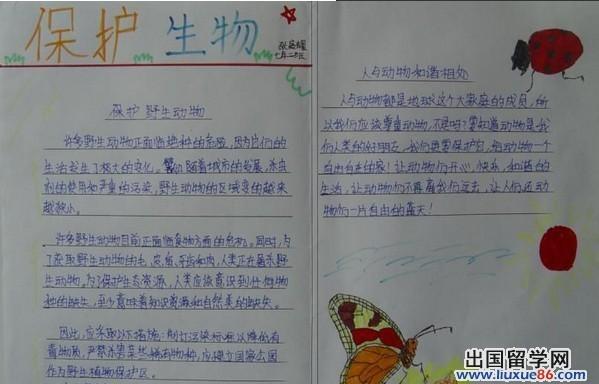 保护生物
七年二班
保护野生动物
许多野生动物正面临绝种的危险，因为它们的
生活发生了极大的变化。随着城市的发展，杀虫
剂的使用和严重的污染，野生动物的区域变的越来
越狭小。
许多野生动物目前正面临食物方面的危机。同时，为
了获取野生动物的毛、皮革、牙齿和肉，人类正在屠杀野
生动物，为了保护生态资源，人类应该意识到任何物
种的缺失，至少意味着知识资源和自然美的缺失。
因此，应采取以下措施：制订污染标准以降低有
毒物质，严禁杀害某些稀有物种，应建立国家公园
作为野生植物保护区。
人与动物和谐相处
人与动物都是地球这个大家庭的成员，所
以我们应该尊重动物，不是吗？要知道动物是我
们人类的好朋友，我们要保护它，给动物一个
自由自在的家！让动物们开心，快乐，和谐的
生活，让动物们不再离我们远去，让人们还动
物们一片自由的蓝天！
出国留学网
www.liuxue86.com